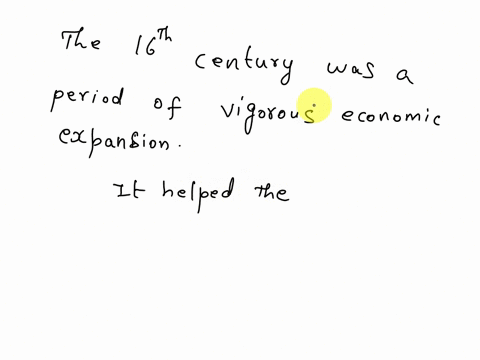 The 16th century was a
period of vigorous economic
expansion.
It helped the